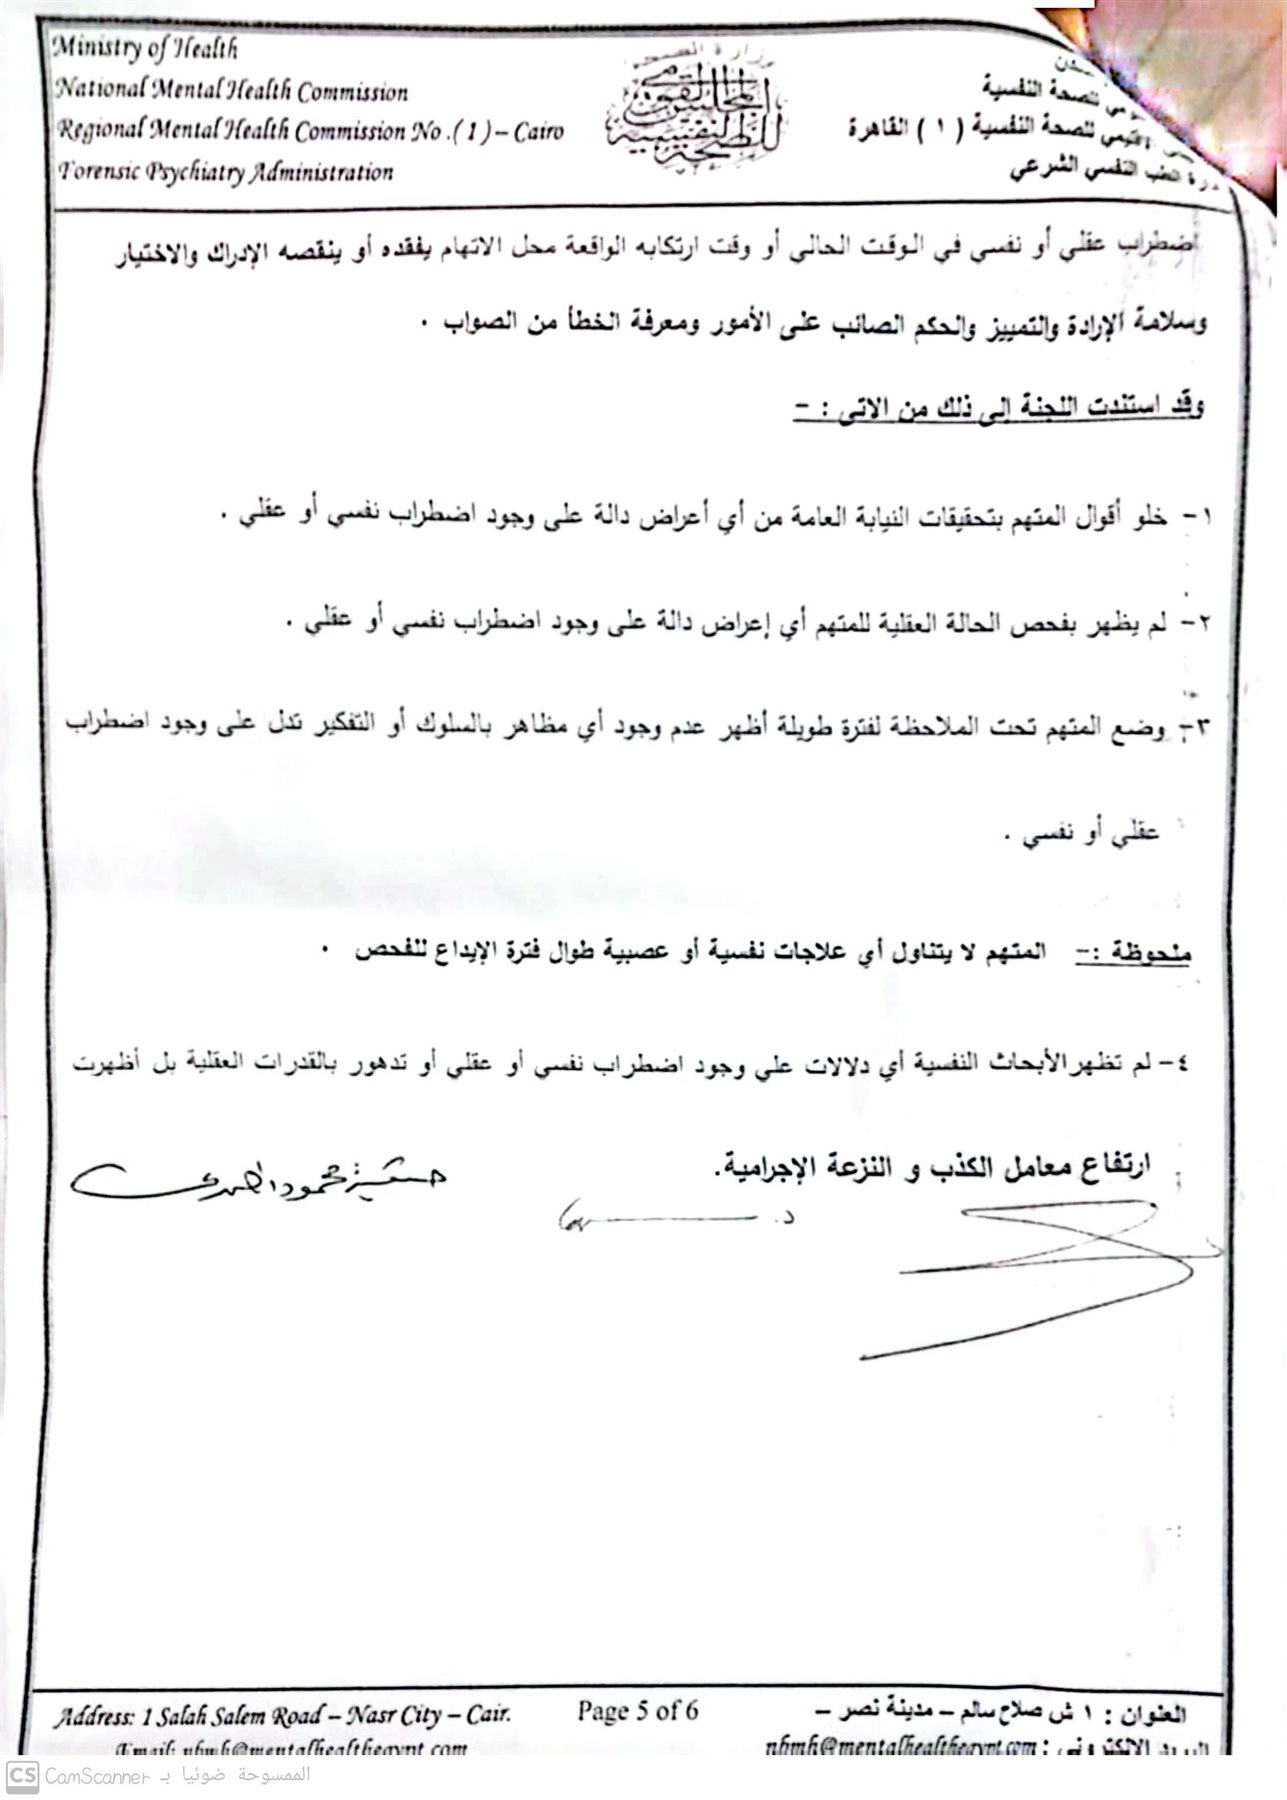 Ministry of Health
National Mental Health Commission
Regional Mental Health Commission No .( 1 ) – Cairo
Forensic Psychiatry Administration
وزارة الصحة
المجلس القومي
للصحة النفسية
للصحة النفسية
للصحة النفسية ( ١ ) القاهرة
الطب النفسي الشرعي
اضطراب عقلي أو نفسي في الوقت الحالي أو وقت ارتكابه الواقعة محل الاتهام يفقده أو ينقصه الإدراك والاختيار
وسلامة الإرادة والتمييز والحكم الصائب على الأمور ومعرفة الخطأ من الصواب .
وقد استندت اللجنة إلى ذلك من الاتى : -
١- خلو أقوال المتهم بتحقيقات النيابة العامة من أي أعراض دالة على وجود اضطراب نفسي أو عقلي .
٢- لم يظهر بفحص الحالة العقلية للمتهم أي إعراض دالة على وجود اضطراب نفسي أو عقلي .
٣- وضع المتهم تحت الملاحظة لفترة طويلة أظهر عدم وجود أي مظاهر بالسلوك أو التفكير تدل على وجود اضطراب
عقلي أو نفسي .
ملحوظة :- المتهم لا يتناول أي علاجات نفسية أو عصبية طوال فترة الإيداع للفحص .
٤- لم تظهر الأبحاث النفسية أي دلالات علي وجود اضطراب نفسي أو عقلي أو تدهور بالقدرات العقلية بل أظهرت
ارتفاع معامل الكذب و النزعة الإجرامية.
محمود
د.
Address: 1 Salah Salem Road – Nasr City – Cair.
Page 5 of 6
العنوان : ١ ش صلاح سالم – مدينة نصر –
Email: nhmh@mentalhealthegypt.com
البريد الالكتروني : nhmh@mentalhealthegypt.com
CS CamScanner الممسوحة ضوئيا بـ